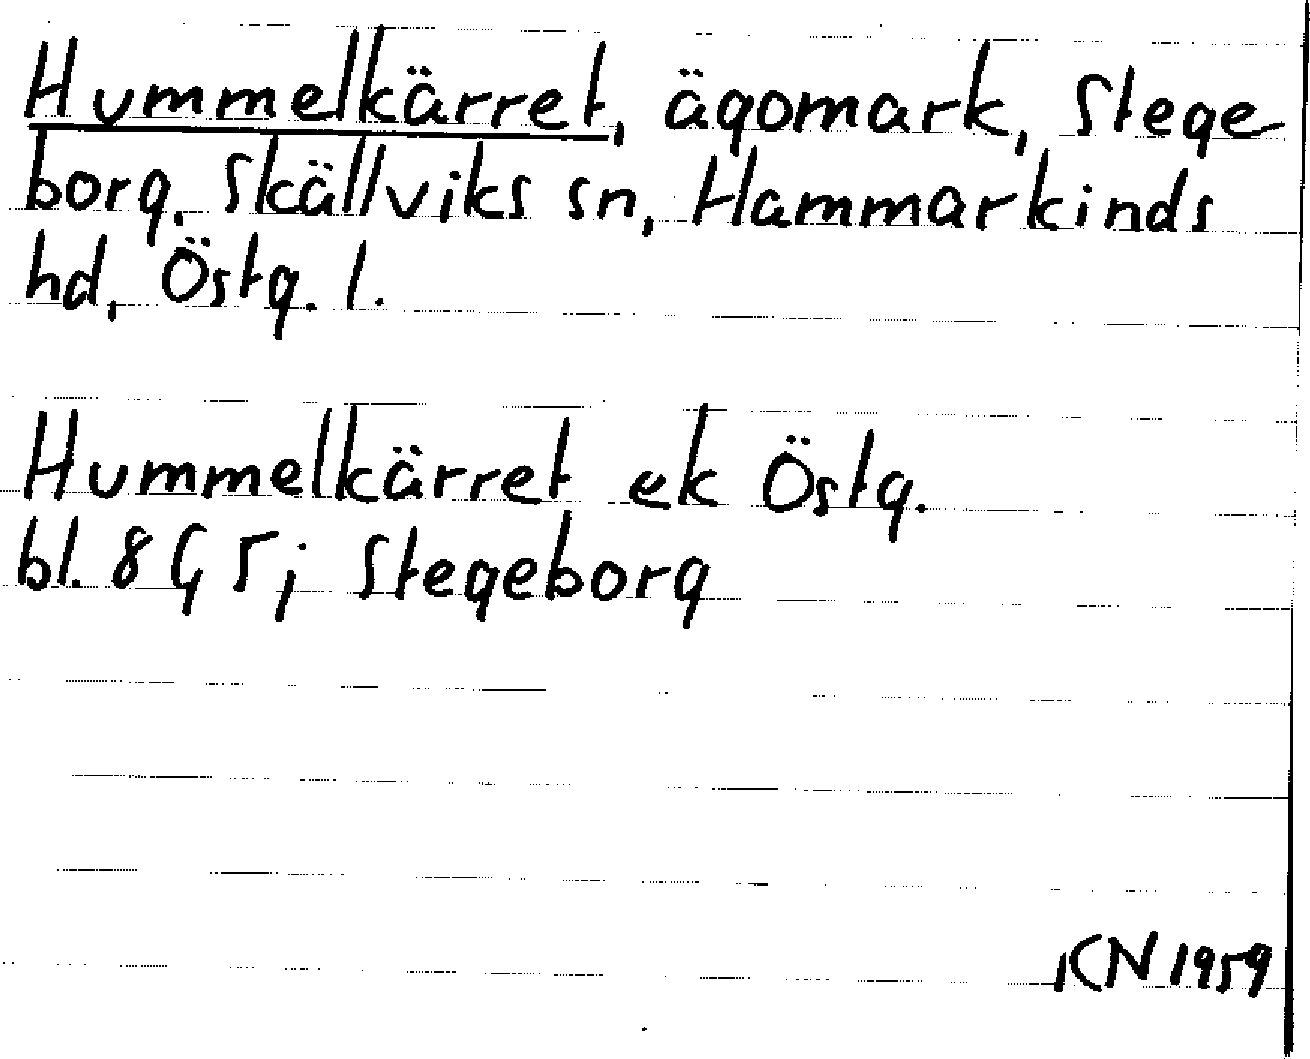 Hummelkärret, ägomark, Stege-
borg. Skällviks sn, Hammarkinds
hd, Östg. l.
Hummelkärret ek Östg.
bl. 8G5; Stegeborg
KN 1959